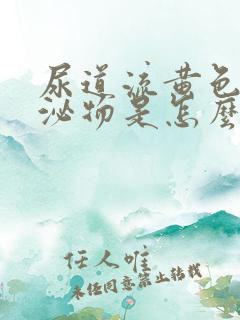 尿道流黄色
泌物是怎麼
任人唯
未经同意禁止转载